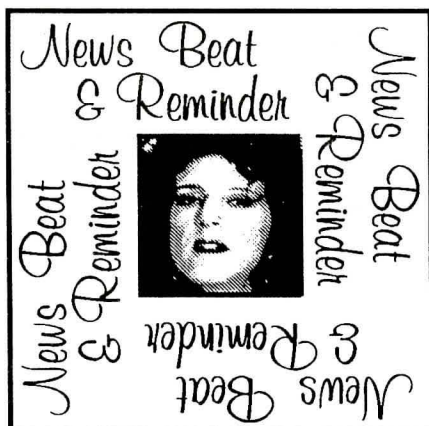 News Beat
& Reminder
News Beat
& Reminder
News Beat
& Reminder
News Beat
& Reminder